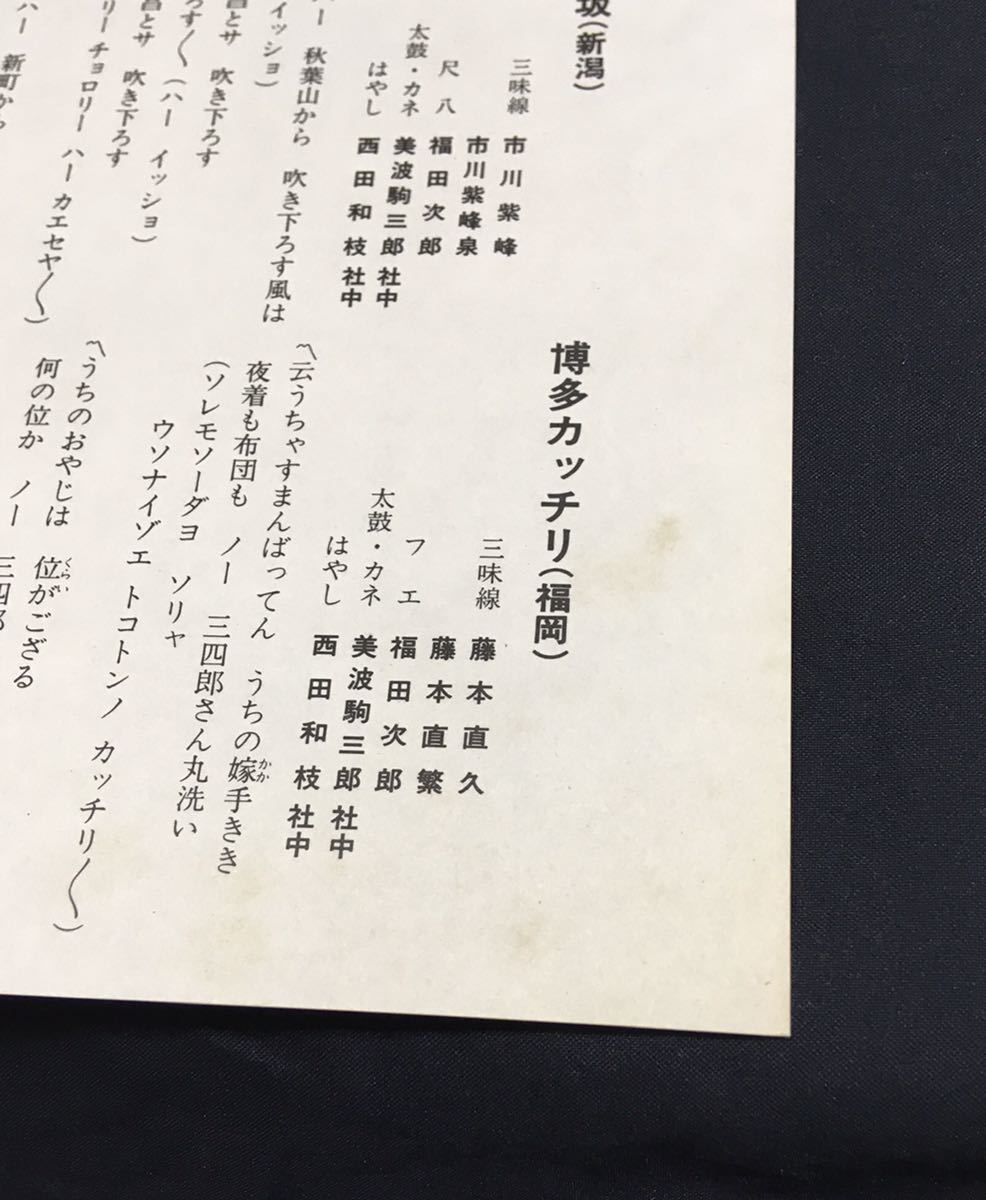 坂（新潟）
三味線　市川紫峰
市川紫峰泉
尺八　福田次郎
太鼓・カネ　美波駒三郎社中
はやし　西田和枝社中
ハー　秋葉山から　吹き下ろす風は
イッショ）
とサ　吹き下ろす
ろす〱（ハー　イッショ）
とサ　吹き下ろす
リー　チョロリー　ハー　カエセヤ〱）
ハー　新町から
博多カッチリ（福岡）
三味線　藤本直久
藤本直繁
フエ　福田次郎
太鼓・カネ　美波駒三郎社中
はやし　西田和枝社中
〽云うちゃすまんばってん　うちの嫁手きき
かか
夜着も布団も　ノー　三四郎さん丸洗い
（ソレモソーダヨ　ソリャ
ウソナイゾエ　トコトンノ　カッチリ〱）
〽うちのおやじは　位がござる
くらい
何の位か　ノー　三四郎